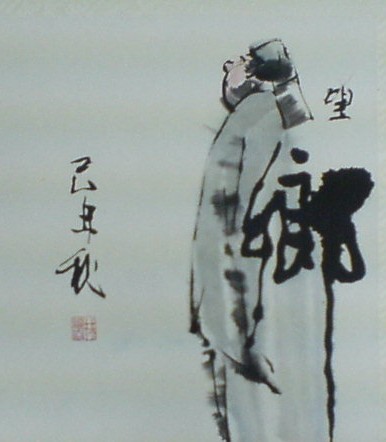 望鄉
己丑秋